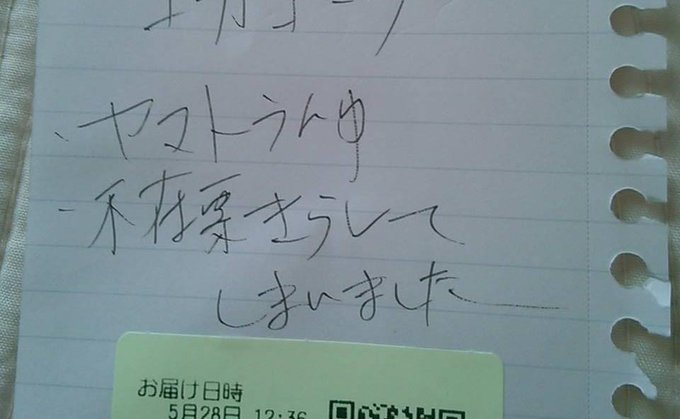 ・ヤマトうんゆ
・不在票きらして
しまいました
お届け日時
5月28日 12:36